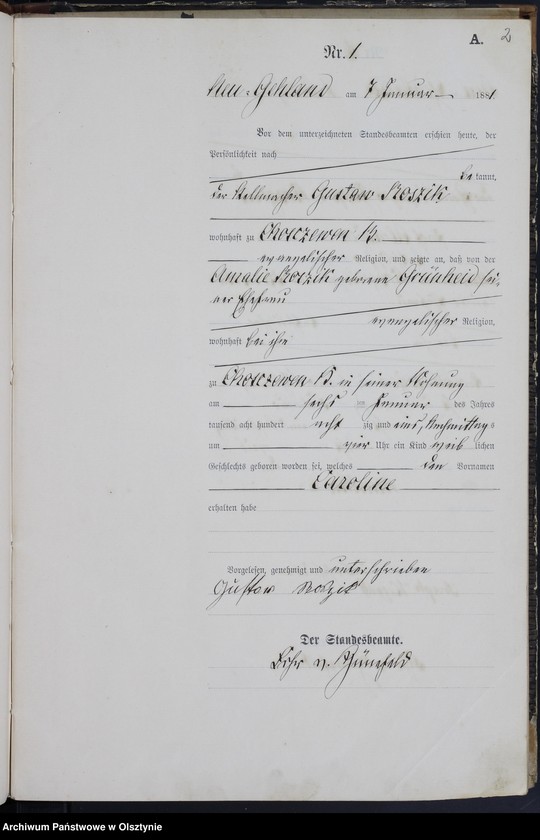 A. 2
Nr. 1.
Neu-Gehland am 7 Januar 1881.
Vor dem unterzeichneten Standesbeamten erschien heute, der
Persönlichkeit nach
bekannt,
der Stellmacher Gustav Koszik
wohnhaft zu Choszewen B.
evangelischer Religion, und zeigte an, daß von der
Amalie Koszik geborene Grünheid sei-
ner Ehefrau
evangelischer Religion,
wohnhaft bei ihm
zu Choszewen B. in seiner Wohnung
am sechs ten Januar des Jahres
tausend acht hundert acht zig und eins, Nachmittags
um vier Uhr ein Kind weiblichen
Geschlechts geboren worden sei, welches den Vornamen
Caroline
erhalten habe
Vorgelesen, genehmigt und unterschrieben
Gustav Koszik
Der Standesbeamte.
v.
Archiwum Państwowe w Olsztynie